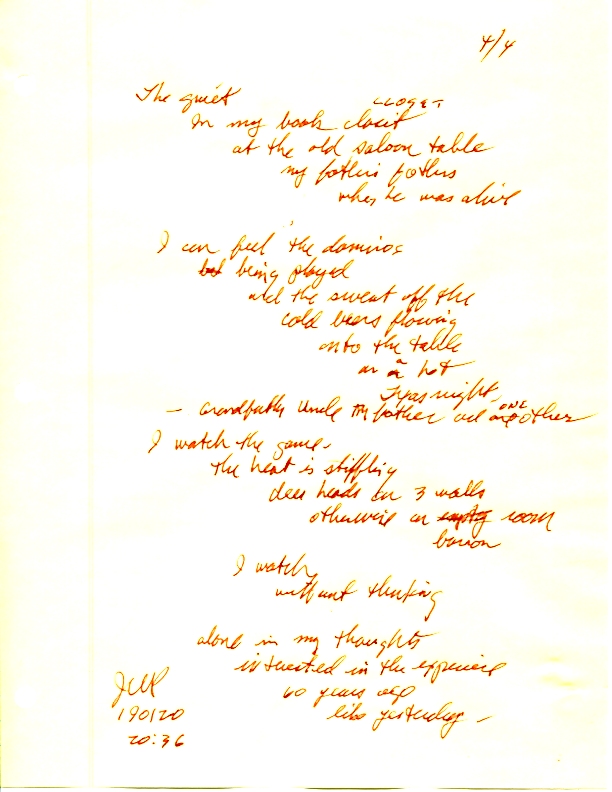 4/4
The quiet
CLOSET
In my book closit
at the old saloon table
my fathers fathers
when he was alive
I can feel the dominos
but being played
and the sweat off the
cold beers flowing
onto the table
on a hot
Texas night.
— Grandfather Uncle my father and ONE other
I watch the game.
the heat is stiffling
deer heads on 3 walls
otherwise an empty room
barron
I watch
without thinking
alone in my thoughts
interested in the experience
60 years ago
like yesterday —
190120
20:36